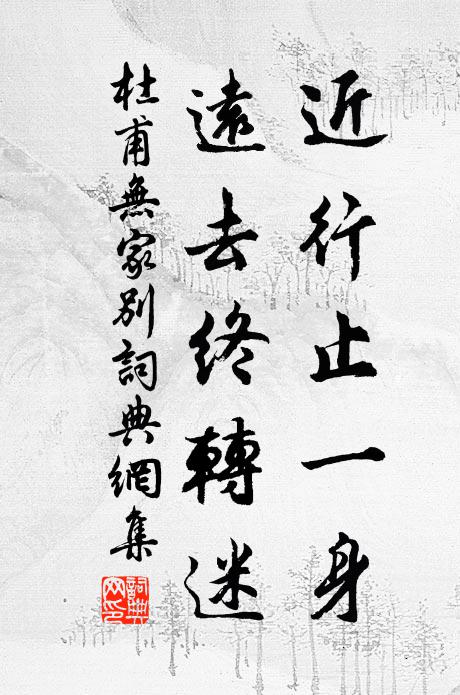 近行止一身
遠去終轉迷
杜甫無家別詞典網集